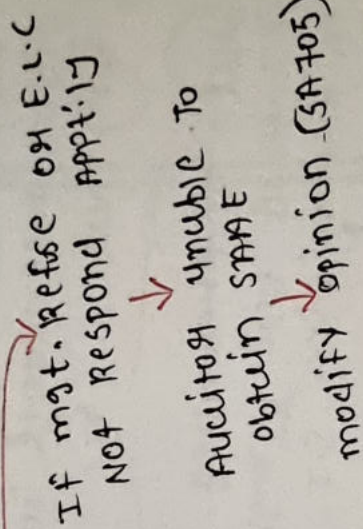 If mgt. Refuse OR E.L.C
Not Respond Appt'ly
↓
Auditor unable To
obtain SAAE
↓
modify opinion (SA705)